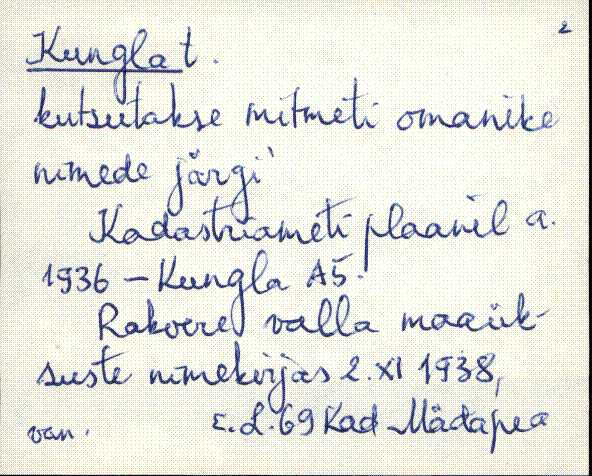 2
Kungla t.
kutsutakse mitmeti omanike
nimede järgi
Kadastriameti plaanil a.
1936 – Kungla A5.
Rakvere valla maaük-
suste nimekirjas 2. XI 1938,
van. E.L. 69 Kad Mädapea